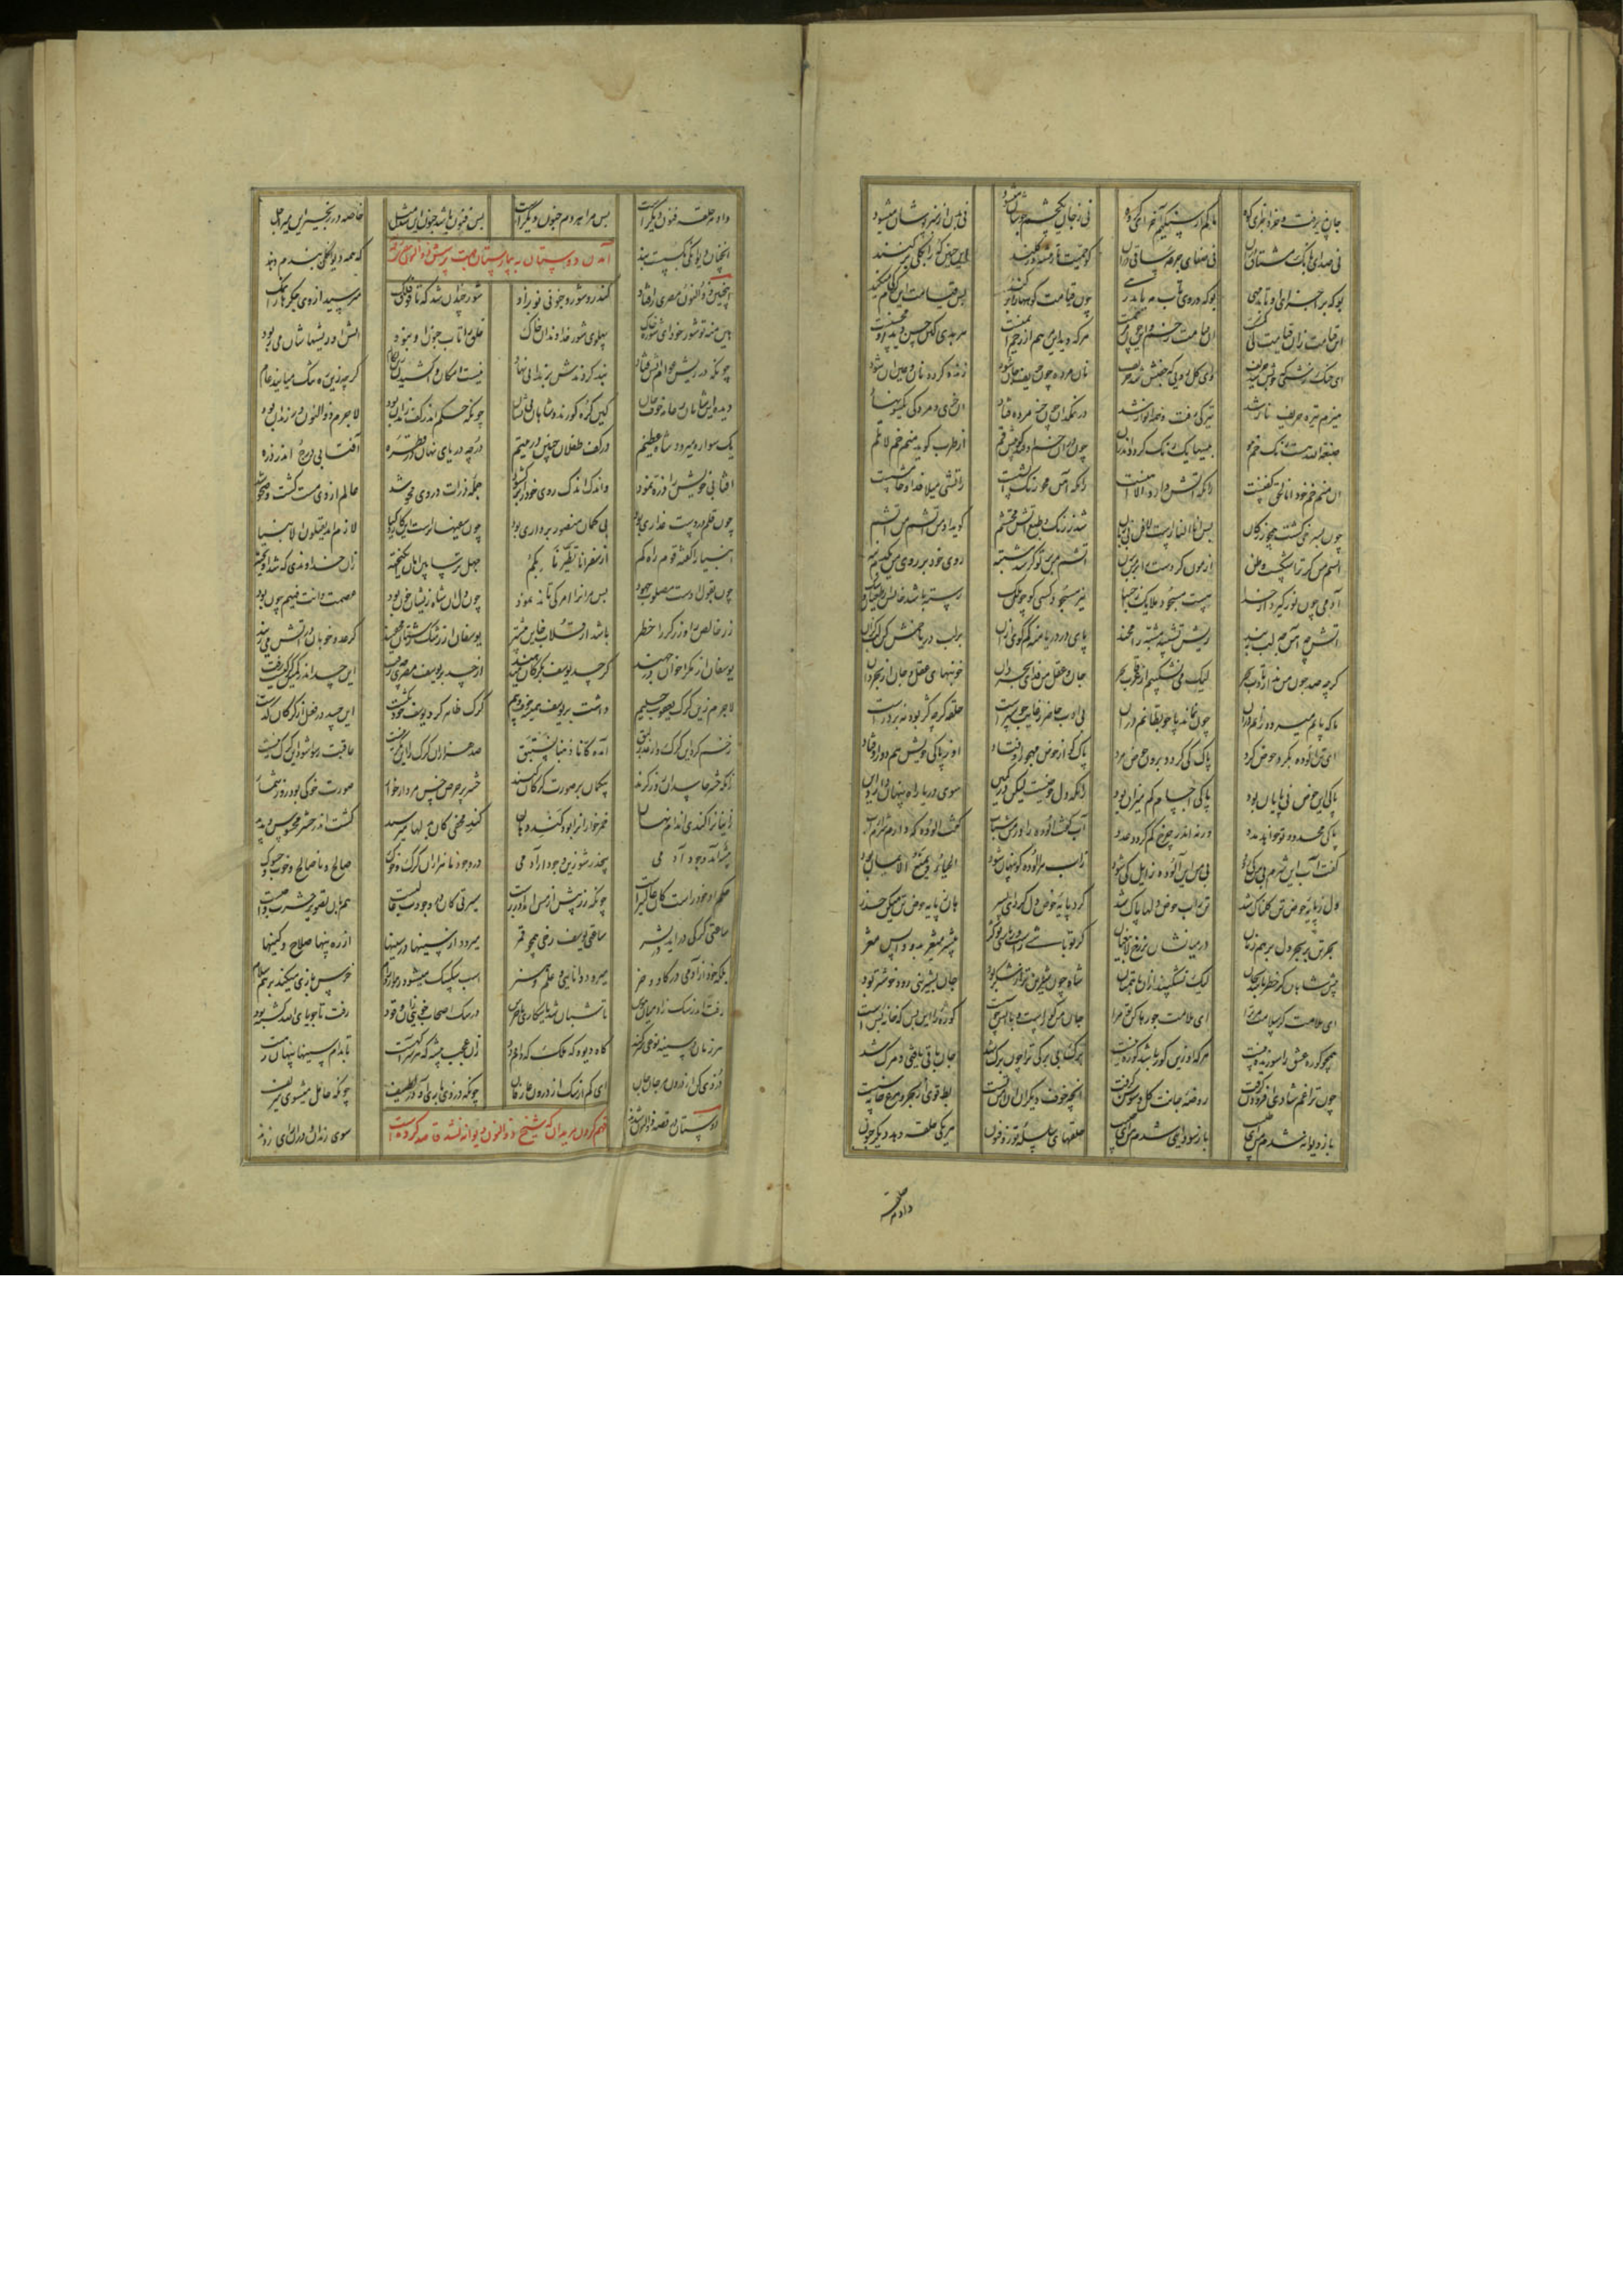 جان پذیرفت و خرد اجزای کوه ما کم از سنگیم آخر ای گروه نی ز جان یک چشمه جوشان میشود نی بدن از سبزپوشان میشود
نی صدای بانک مشتاقی دران نی صفای جرعه ساقی دران کو حمیت تا ز تیشه وز کلند این چنین که را بکلی برکنند
بوکه بر اجزای او تابد مهی بوکه در وی تاب مه یابد رهی چون قیامت کوهها را برکند پس قیامت این کرم کی میکند
این قیامت زان قیامت کی کمست آن قیامت زخم و این چون مرهمست هر که دید این مرهم از زخم ایمنست هر بدی کاین حسن دید او محسنست
ای خنک زشتی که خوبش شد حریف وای گل رویی که جفتش شد خریف نان مرده چون حریف جان شود زنده گردد نان و عین آن شود
هیزم تیره حریف نار شد تیرگی رفت و همه انوار شد در نمکدان چون خر مرده فتاد آن خری و مردگی یکسو نهاد
صبغة الله هست رنگ خم هو پیسها یک رنگ گردد اندرو چون در آن خم افتد و گوییش قم از طرب گوید منم خم لا تلم
آن منم خم خود انا الحق گفتنست رنگ آتش دارد الا آهنست رنگ آهن محو رنگ آتشست ز آتشی میلافد و خامش وشست
چون بسرخی گشت همچو زر کان پس انا النارست لافش بی زبان شد ز رنگ و طبع آتش محتشم گوید او من آتشم من آتشم
آتشم من گر ترا شکست و ظن آزمون کن دست را بر من بزن آتشم من بر تو گر شد مشتبه روی خود بر روی من یکدم بنه
آدمی چون نور گیرد از خدا هست مسجود ملایک ز اجتبا نیز مسجود کسی کو چون ملک رسته باشد جانش از طغیان و شک
آتش چه آهن چه لب ببند ریش تشبیه مشبه را مخند پای در دریا منه کم گوی ازان بر لب دریا خمش کن لب گزان
گرچه صد چون من ندارد تاب بحر لیک می نشکیبم از غرقاب بحر جان و عقل من فدای بحر باد خونبهای عقل و جان این بحر داد
تا که پایم میرود رانم دران چون نماند پا چو بطانم دران بی ادب حاضر ز غایب خوشترست حلقه گرچه کژ بود نه بر درست
ای تن آلوده بگرد حوض گرد پاک کی گردد برون حوض مرد پاک کو از حوض مهجور اوفتاد او ز پاکی خویش هم دور اوفتاد
پاکی این حوض بی پایان بود پاکی اجسام کم میزان بود زانکه دل حوضست لیکن در کمین سوی دریا راه پنهان دارد این
پاکی محدود تو خواهد مدد ورنه اندر خرج کم گردد عدد آب گفت آلوده را در من شتاب گفت آلوده که دارم شرم از آب
گفت آب این شرم بی من کی رود بی من این آلوده زایل کی شود ز آب هر آلوده کو پنهان شود الحیاء یمنع الایمان بود
دل ز پایه حوض تن گلناک شد تن ز آب حوض دلها پاک شد گرد پایه حوض دل گرد ای پسر هان ز پایه حوض تن میکن حذر
بحر تن بر بحر دل بر هم زنان در میانشان برزخ لا یبغیان گر تو باشی راست ور باشی تو کژ پیشتر میغژ بدو واپس مغژ
پیش شاهان گر خطر باشد بجان لیک نشکیبند ازو با همتان شاه چون شیرین تر از شکر بود جان بشیرینی رود خوشتر بود
ای ملامت گر سلامت مر ترا ای سلامت جو رها کن تو مرا جان من کوره است با آتش خوشست کوره را این بس که خانه آتشست
همچو کوره عشق را سوزیدنیست هر که او زین کور باشد کوره نیست برگ بی برگی ترا چون برگ شد جان باقی یافتی و مرگ شد
چون ترا غم شادی افزودن گرفت روضه جانت گل و سوسن گرفت آنچه خوف دیگران آن امن تست بط قوی از بحر و مرغ خانه سست
باز دیوانه شدم من ای طبیب باز سودایی شدم من ای حبیب حلقهای سلسله تو ذو فنون هر یکی حلقه دهد دیگر جنون
داد هر حلقه
داد هر حلقه فنونی دیگرست پس مرا هر دم جنونی دیگرست پس فنون باشد جنون این شد مثل خاصه در زنجیر این میر اجل
آنچنان دیوانگی بگسست بند که همه دیوانگان پندم دهند
آمدن دوستان به بیمارستان جهت پرسش ذوالنون مصری
اینچنین ذوالنون مصری را فتاد کاندرو شور و جنونی نو بزاد شور چندان شد که تا فوق فلک میرسید از وی جگرها را نمک
هین منه تو شور خود ای شوره خاک پهلوی شور خداوندان پاک خلق را تاب جنون او نبود آتش او ریشهاشان می ربود
چونکه در ریش عوام آتش فتاد بند کردندش بزندانی نهاد نیست امکان واکشیدن این لگام گرچه زین ره تنگ میایند عام
دیده این شاهان ز عامه خوف جان کین گره کورند و شاهان بی نشان چونکه حکم اندر کف رندان بود لاجرم ذوالنون در زندان بود
یک سواره میرود شاه عظیم در کف طفلان چنین در یتیم در چه دریای نهان در قطره آفتابی درج اندر ذره
آفتابی خویش را ذره نمود واندک اندک روی خود را برگشود جمله ذرات در وی محو شد عالم از وی مست گشت و صحو شد
چون قلم در دست غداری بود بی گمان منصور برداری بود چون سفیهانراست این کار و کیا لازم آمد یقتلون الانبیا
انبیا را گفته قوم راه گم از سفه انا تطیرنا بکم جهل ترسا بین امان انگیخته زان خداوندی که شد آویخته
چون بقول اوست مصلوب جهود پس مر او را امن کی تاند نمود چون دل آن شاه زیشان خون بود عصمت و انت فیهم چون بود
زر خالص را و زرگر را خطر باشد از قلاب خاین بیشتر یوسفان از رشک زشتان مخفیند کز عدو خوبان در آتش میزیند
یوسفان از مکر اخوان در چهند کز حسد یوسف بگرگان میدهند از حسد بر یوسف مصری چه رفت این حسد اندر کمین گرگیست زفت
لاجرم زین گرگ یعقوب حلیم داشت بر یوسف همیشه خوف و بیم گرگ ظاهر گرد یوسف خود نگشت این حسد در فعل از گرگان گذشت
زخم کرد این گرگ وز عذر لبق آمده کانا ذهبنا نستبق صد هزاران گرگ را این مکر نیست عاقبت رسوا شود این گرگ بیست
زانکه حشر حاسدان روز گزند بی گمان بر صورت گرگان کنند حشر پر حرص خس مردار خوار صورت خوکی بود روز شمار
زانیانرا گند اندام نهان خمر خوارانرا بود گند دهان گند مخفی کان بدلها میرسید گشت اندر حشر محسوس و پدید
بیشه آمد وجود آدمی پرحذر شو زین وجود ار آدمی در وجود ما هزاران گرگ و خوک صالح و ناصالح و خوب و خوک
حکم آن خو راست کان غالبترست چونکه زر بیش از مس آمد آن زرست سیرتی کان در وجودت غالبست هم بران تصویر حشرت واجبست
ساعتی گرگی درآید در بشر ساعتی یوسف رخی همچو قمر میرود از سینها در سینها از ره پنهان صلاح و کینها
بلکه خود از آدمی در گاو و خر میرود دانایی و علم و هنر اسب سکسک میشود رهوار و رام خرس بازی میکند بز هم سلام
رفت اندر سگ ز آدمیان هوس تا شبان شد یا شکاری یا حرس در سگ اصحاب خویی زان رقود رفت تا جویای الله گشته بود
هر زمان در سینه نوعی سر کند گاه دیو و گه ملک گه دام و دد زان عجب بیشه که هر شیر آگهست تا بدام سینها پنهان رهست
دزدیی کن از درون مرجان جان ای کم از سگ از درون عارفان چونکه دزدی باری آن در لطیف چونکه حامل میشوی باری شریف
فهم کردن مریدان که شیخ ذوالنون دیوانه نشد قاصد کرده است
دوستان در قصه ذوالنون شدند سوی زندان و دران رای زدند